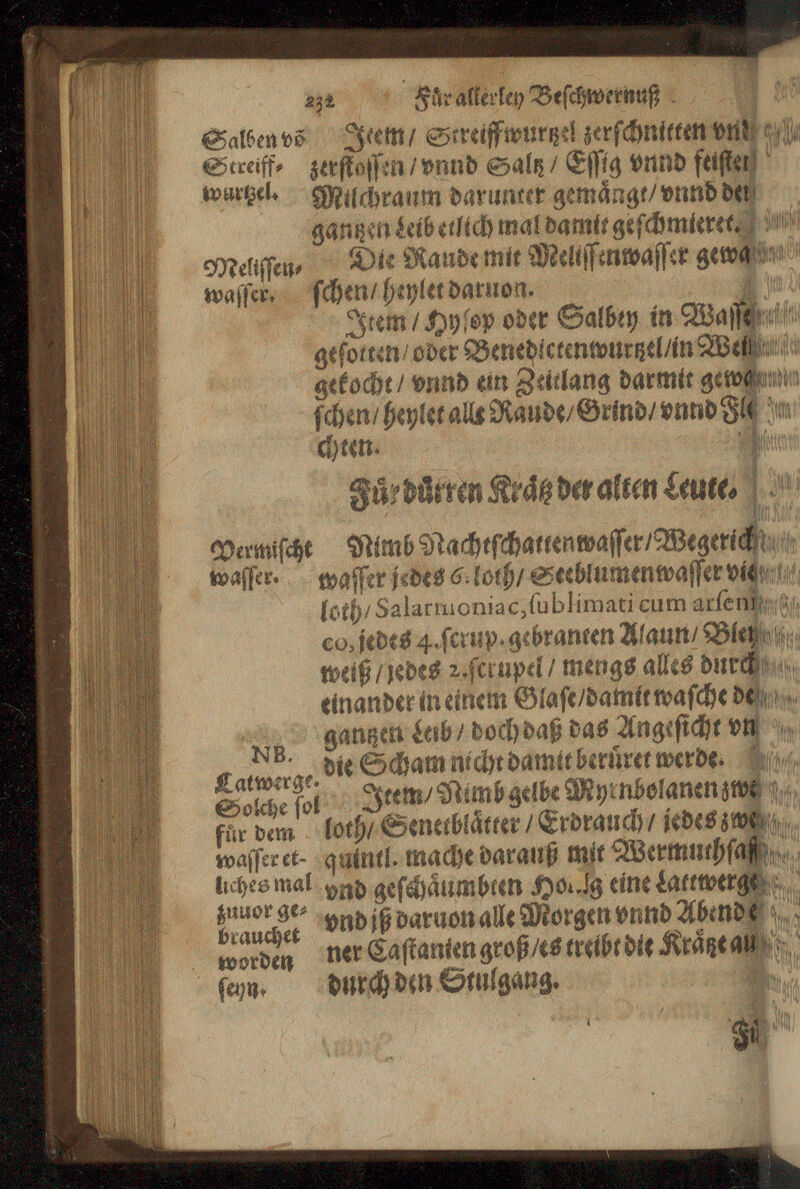 232 Für allerley Beschwernuß
Salben võ
Streiff⸗
wurtzel.
Item / Streiffwurtzel zerschnitten vnd
zerstossen / vnnd Saltz / Essig vnnd feisten
Milchraum darunter gemängt / vnnd den
gantzen Leib etlich mal damit geschmieret.
Melissen⸗
wasser.
Die Raude mit Melissenwasser gewa
schen / heylet daruon.
Item / Hysop oder Salbey in Wasser
gesotten / oder Benedictenwurtzel / in Wein
gekocht / vnnd ein Zeitlang darmit gewa
schen / heylet alle Raude / Grind / vnnd Fle
chten.
Für dürren Krätz der alten Leute.
Vermischt
wasser.
Nimb Nachtschattenwasser / Wegerich
wasser jedes 6. loth / Seeblumenwasser vier
loth / Salarmoniac, sublimati cum arseni
co, jedes 4. scrup. gebranten Alaun / Bley
weiß / jedes 2. scrupel / mengs alles durch
einander in einem Glase / damit wasche den
gantzen Leib / doch daß das Angesicht vn
die Scham nicht damit berüret werde.
NB.
Latwerge.
Solche sol
für dem
wasser et⸗
liches mal
zuuor ge⸗
brauchet
worden
seyn.
Item / Nimb gelbe Myrnbolanen zwey
loth / Senetblätter / Erdrauch / jedes zwey
quintl. mache darauß mit Wermuthsafft
vnd geschäumbten Honig eine Lattwerge
vnd iß daruon alle Morgen vnnd Abend e
ner Castanien groß / es treibt die Krätze auß
durch den Stulgang.
Für